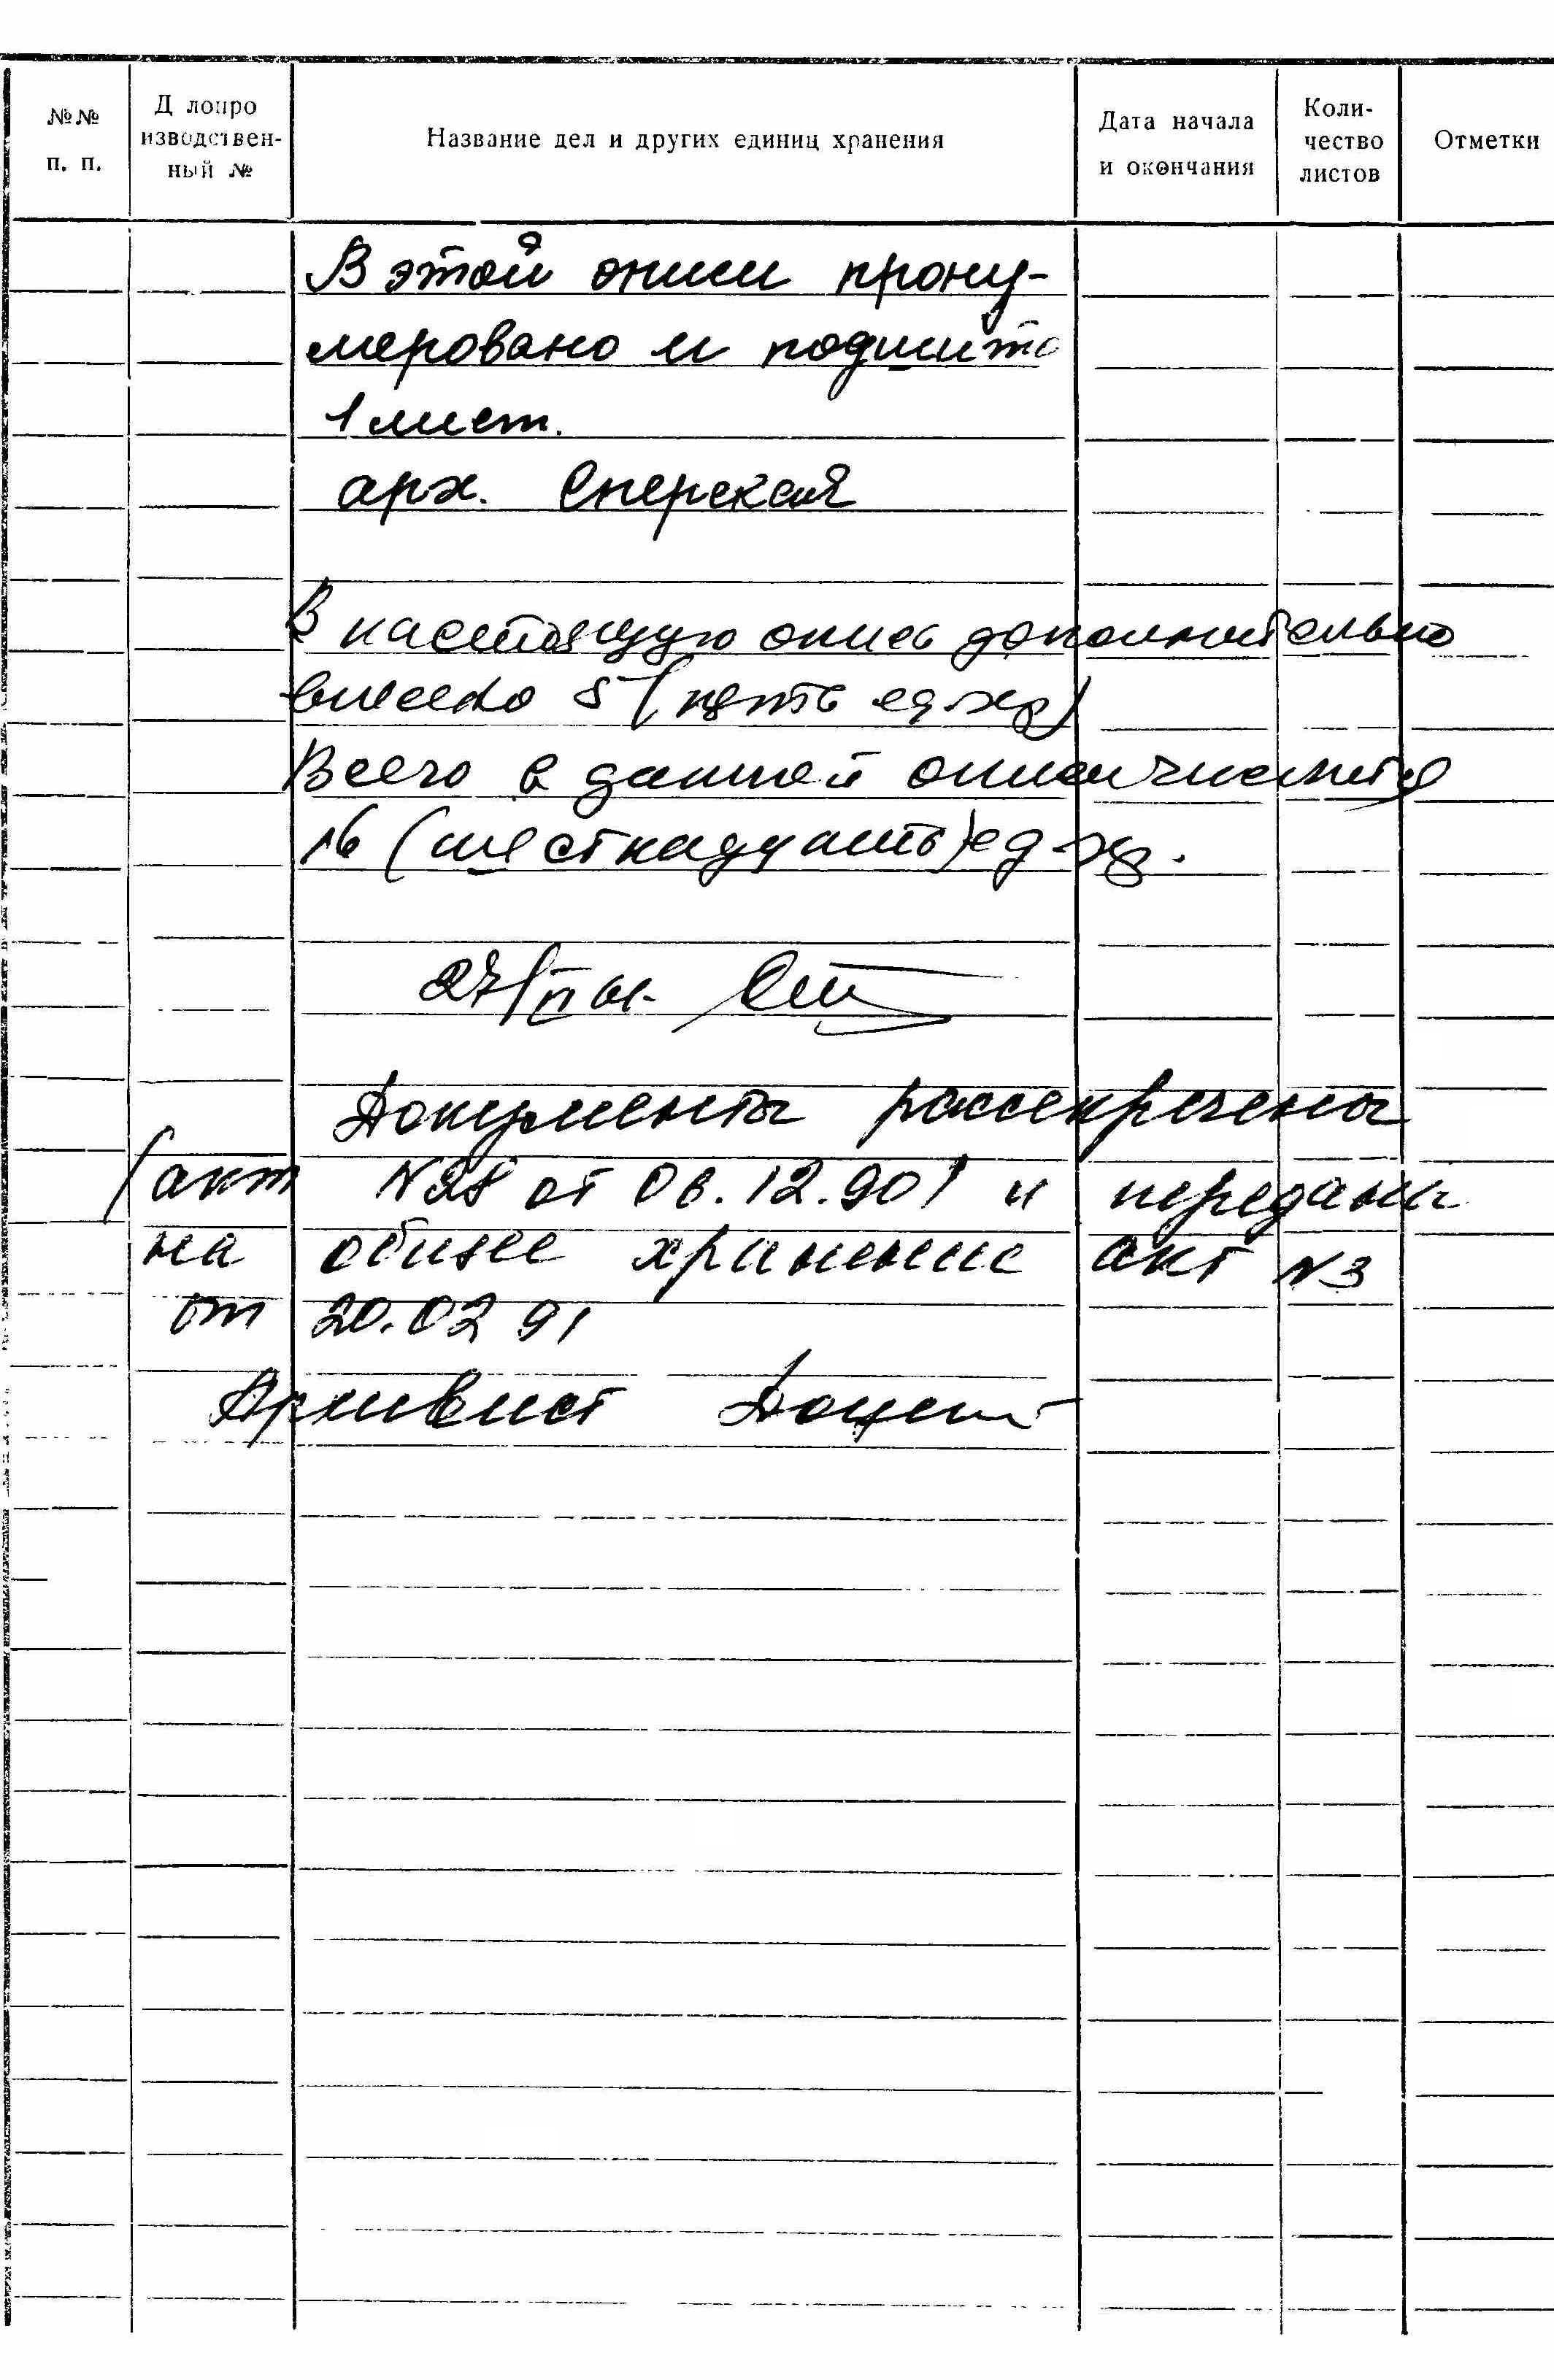 №№ п. п.
Д лопро изводствен- ный №
Название дел и других единиц хранения
Дата начала и окончания
Коли- чество листов
Отметки
В этой описи прону-
меровано и подшито
1 лист.
арх. Сперская
В настоящую опись дополнительно
внесено 5 (пять ед.хр)
Всего в данной описи числится
16 (шестнадцать) ед.хр.
27/II
Документы рассекречены
(акт N 28 от 06.12.90) и переданы
на общее хранение акт N3
от 20.02 91
Архивист